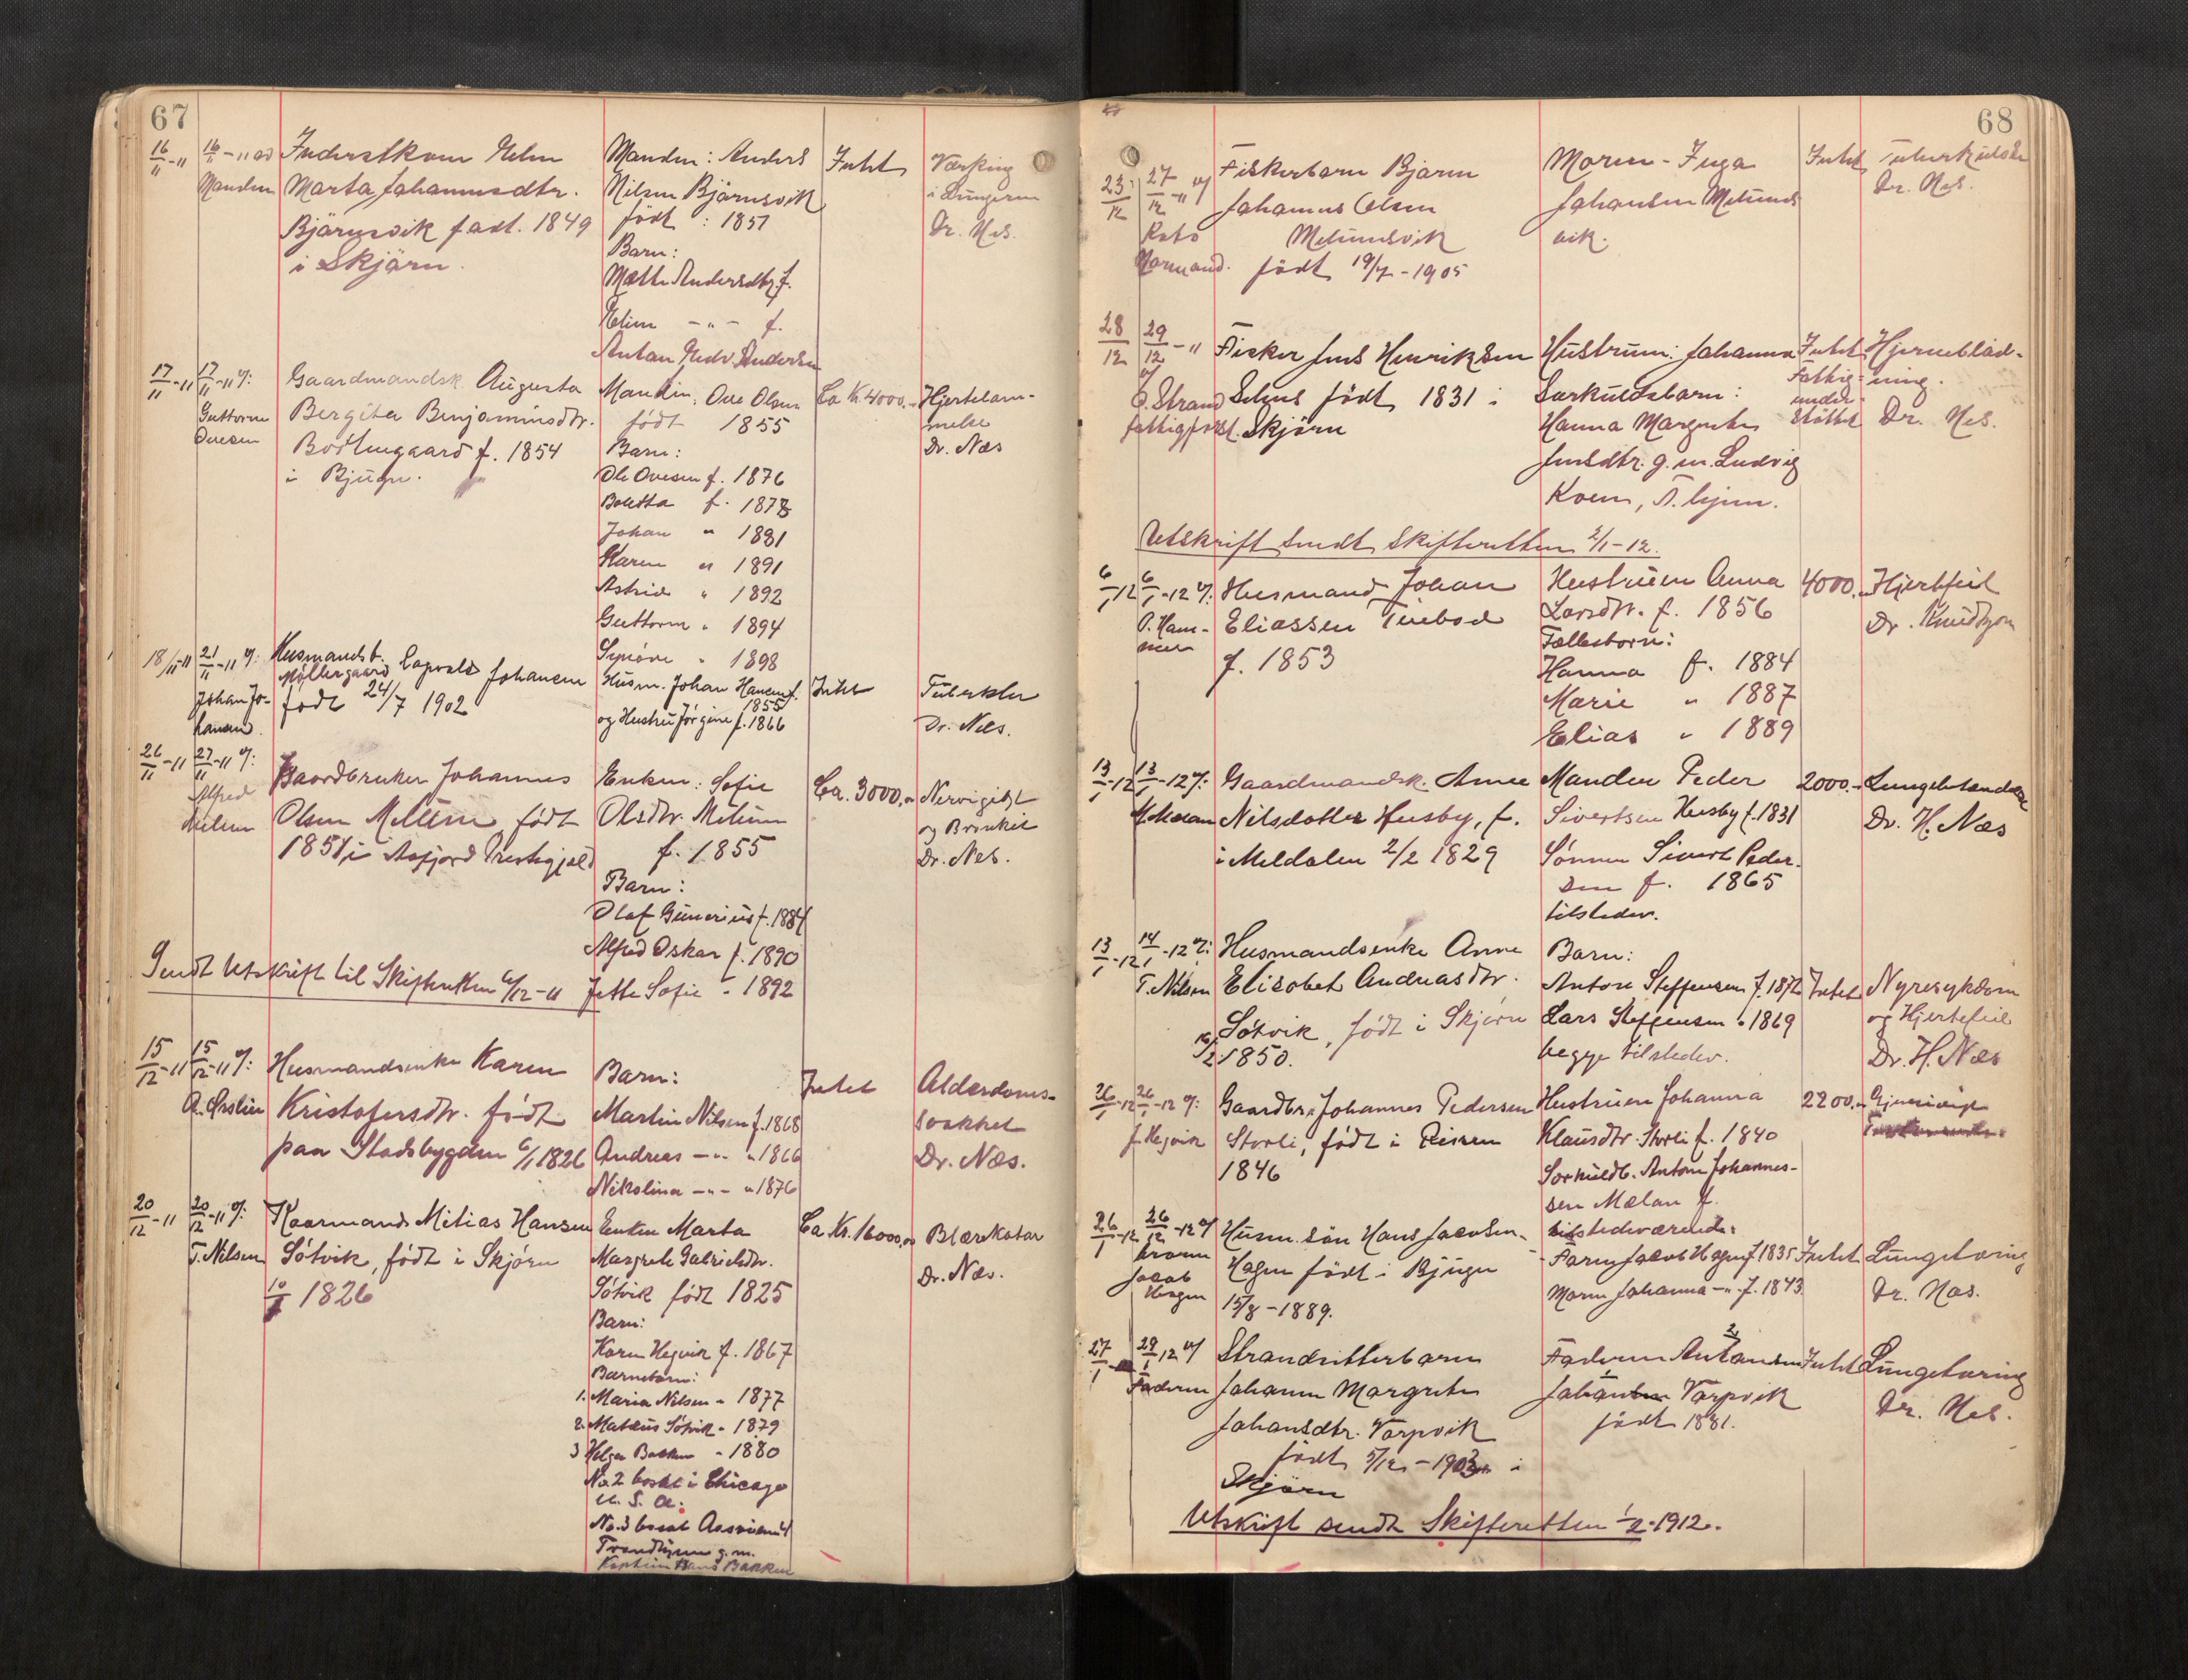 67
16/11-11
16/11-11 ad
Manden
Inderstkone Elen
Marta Johannesdtr.
Bjørnsvik født. 1849
i Skjørn.
Manden: Anders
Nilsen Bjørnsvik
født : 1857
Barn:
Mette Andersdtr. f.
Elin - " - f.
Anton Edv. Andersen
Intet
i Lungerne
Dr. Næs.
17/11-11
17/11-11 v/:
Guttorm
Ovesen
Gaardmandsk. Augusta
Bergitta Benjaminsdtr.
Botlengaard f. 1854
i Bjugn.
Manden: Ove Olsen
født 1855
Barn:
Ole Ovesen f. 1876
Boletta f. 1878
Johan " 1881
Karen " 1891
Astrid " 1892
Guttorm " 1894
Synøve " 1898
Ca K. 4000.-
Hjertelam-
melse
Dr. Næs
18/11-11
21/11-11 v/:
Johan Jo-
hansen.
Husmandsb.
Møllergaard Johansen
født 24/7 1902
Husm. Johan Hansen f.
1855
og Hustru Jørgine f. 1866
Intet
Tuberkler
Dr. Næs.
26/11-11
27/11-11 v/:
Alfred
Melum
Gaardbruker Johannes
Olsen Melum født
1851 i Aafjord Prestegjeld
Enken: Sofie
Olsdtr. Melum
f. 1855
Barn:
Olaf Gunerius f. 1884
Alfred Oskar f. 1890
Jette Sofie " 1892
Ca. 3000.-
og Bronkit
Dr. Næs.
Sendt Utskrift til Skifteretten 6/12-11
15/12-11
15/12-11 v/:
Husmandsenke Karen
Kristofersdtr. født
paa Stadsbygden 6/1 1826
Barn:
Martin Nilsen f. 1868
Andreas - " - " 1866
Nikolina - " - " 1876
Intet
Alderdoms-
svakhet
Dr. Næs.
20/12-11
20/12-11 v/:
T. Nilsen
Kaarmand Mitias Hansen
Søtvik, født i Skjørn
1826
Enken Marta
Margrete Gabrielsdtr.
Søtvik født 1825
Barn:
Karen Hegvik f. 1867
Barnebarn:
1. Maria Nilsen - 1877
2. Mateus Søtvik - 1879
3 Helga Bakken - 1880
No. 2 bosat i Chicago
U. S. A.
No. 3 bosat
Trondhjem g. m.
Kaptein Hans Bakken
Ca Kr. 16000.-
Blærekatar
Dr. Næs.
68
23/12
27/12-11 v/
Fiskerbarn Bjarne
Johannes Olsen
Melumsvik
født 19/7-1905
Moren - Inga
Johansen Melums
vik.
Intet
Tuberkulose
Dr. Næs.
28/12
29/12-11
v/
O. Strand
fattigforst.
Fisker Jens Henriksen
Selnes født 1831 i
Skjørn
Hustruen: Johanna
Særkuldsbarn:
Hanna Margrete
Jensdtr. g. m. Ludvig
Kvern, T. hjem.
Intet
Fattig-
under-
støttet
Hjerneblød-
ning.
Dr. Næs.
Utskrift sendt Skifteretten 2/1-12.
6/1-12
6/1-12 v/:
O. Ham-
mer
Husmand Johan
Eliassen Teiebod
f. 1853
Hustruen Anna
Larsdtr. f. 1856
Fellesbørn:
Hanna f. 1884
Marie " 1887
Elias " 1889
4000.-
Hjertefeil
Dr. Knudtzon
13/1-12
13/1-12 v/:
Gaardmandsk. Anne
Nilsdatter Husby, f.
i Meldalen 2/2 1829
Manden Peder
Sivertsen Husby f. 1831
Sønnen Sivert Peder-
sen f. 1865
tilstede.
2000.-
Lungebetændelse
Dr. H. Næs
13/1-12
14/1-12 v/:
T. Nilsen
Husmandsenke Anne
Elisabet Andreasdtr.
Søtvik, født i Skjørn
1850.
Barn:
Anton Steffensen f. 1872
Lars Steffensen " 1869
begge tilstede.
Intet
Nyresykdom
og Hjertefeil
Dr. H. Næs
26/1-12
26/1-12 v/:
J. Hegvik
Gaardbr. Johannes Pedersen
Storli, født i Rissen
1846
Hustruen Johanna
Klausdtr. Storli f. 1840
Særkuldb. Anton Johannes-
sen Mælan f.
tilstedeværende.
2200.-
26/1-12
26/1-12 v/
Jacob
Hagen
Husm. søn Hans Jacobsen
Hagen født i Bjugn
15/8-1889.
Faren Jacob Hagen f. 1835
Moren Johanna - " - f. 1843
Intet
Lungetæring
Dr. Næs.
27/1
29/1 12 v/
Faderen
Strandsitterbarn
Johanna Margrete
Johansdtr. Varpvik
født 5/12-1903 i
Skjørn
Faderen Antonsen
Johan Varpvik
født 1881.
Intet
Lungetæring
Dr. Næs.
Utskrift sendt Skifteretten 1/2-1912.